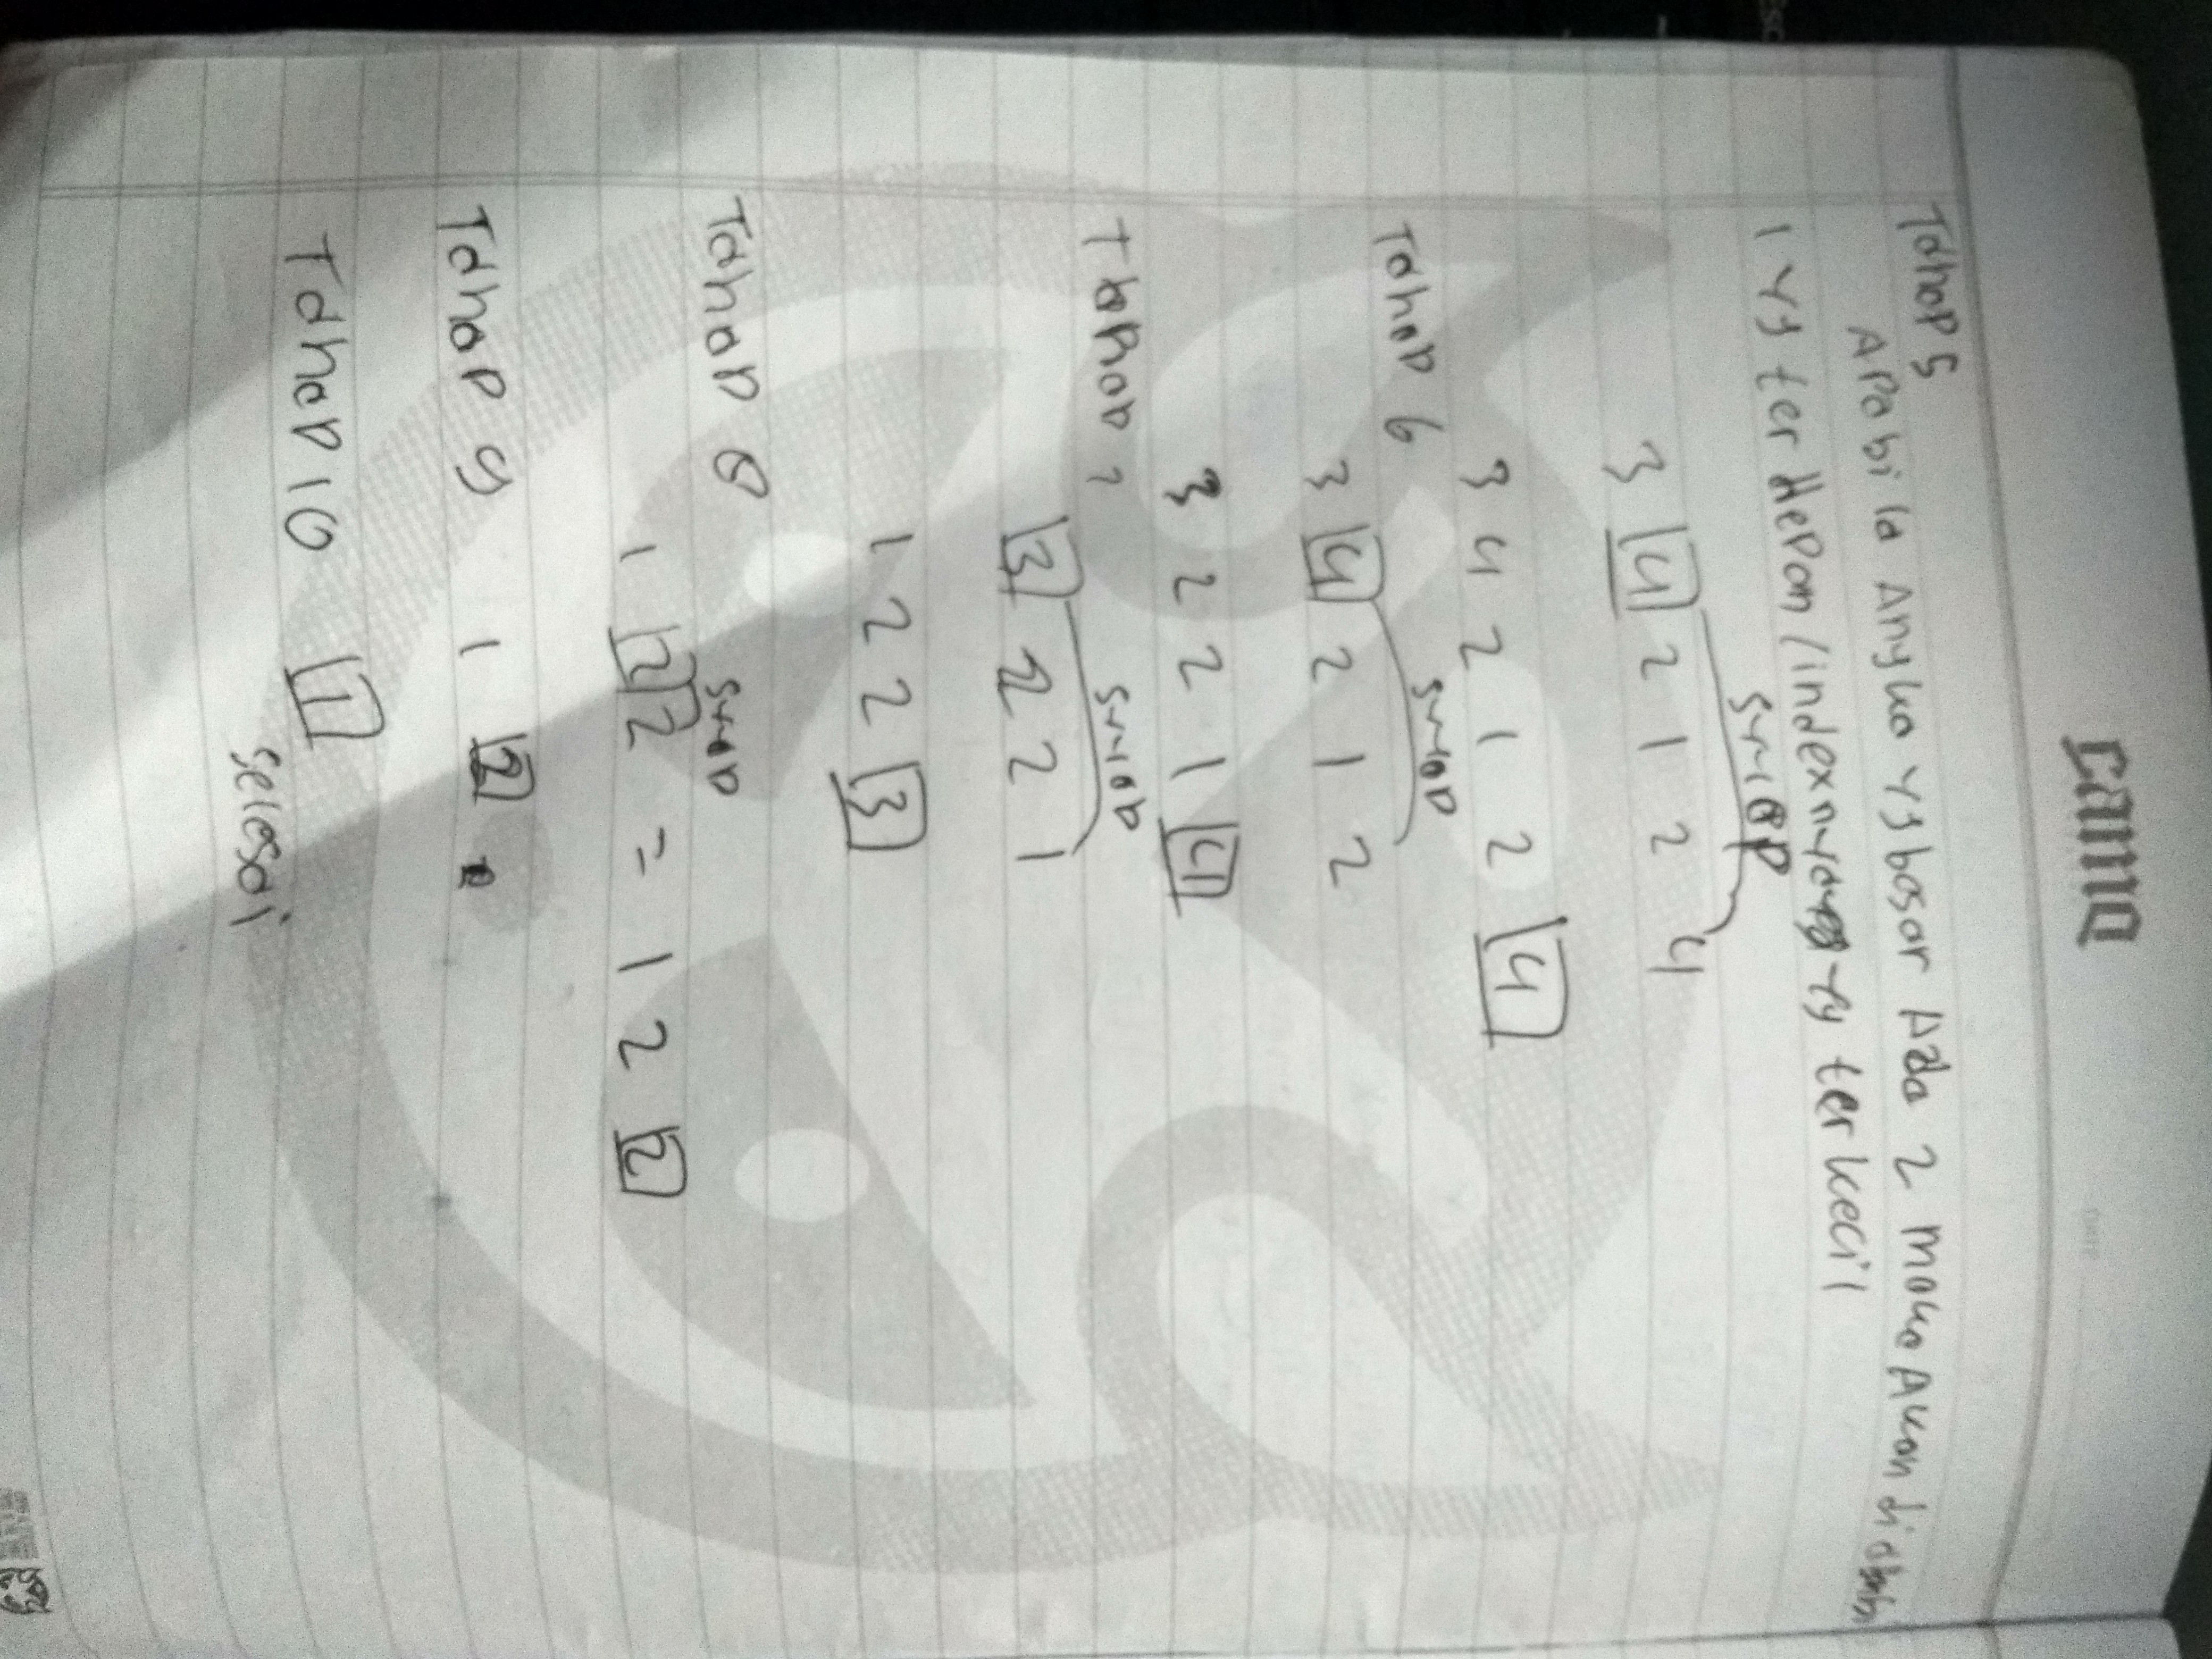 camo
DATE
Tahap 5
Apabila Angka yg besar Ada 2 maka Akan di
1 yg ter depan / indexnya yg terkecil
swap
3 4 2 1 2 4
3 4 2 1 2 4
Tahap 6
swap
3 4 2 1 2
3 2 2 1 4
Tahap 7
swap
3 2 2 1
1 2 2 3
Tahap 8
swap
1 2 2 = 1 2 2
Tahap 9 1 2
Tahap 10 1
selesai